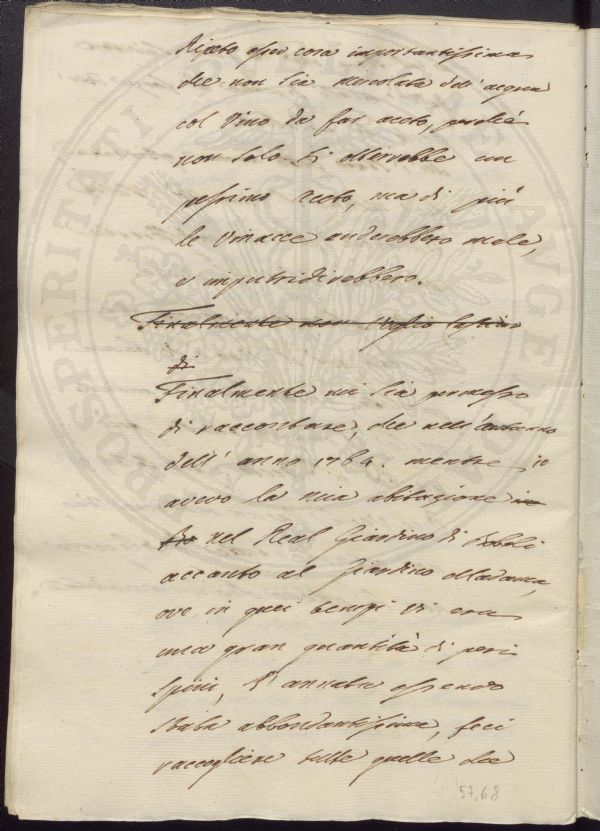 Ripeto esser cosa importantissima
che non sia mescolata dell'acqua
col Vino da far aceto, perchè
non solo si otterrebbe un
pessimo Aceto, ma di più
le Vinacce anderebbero male,
e imputridirebbero.
Finalmente non voglio lasciar
di
Finalmente mi sia permesso
di raccontare, che nell'autunno
dell' anno 1784. mentre io
avevo la mia abitazione in
nel Real Giardino di Boboli
accanto al Giardino Madama,
ove in quei tempi vi era
una gran quantità di peri
spini, l'annata essendo
stata abbondantissima, feci
raccogliere tutte quelle che
57,68
PROSPERITATI AVGENDAE